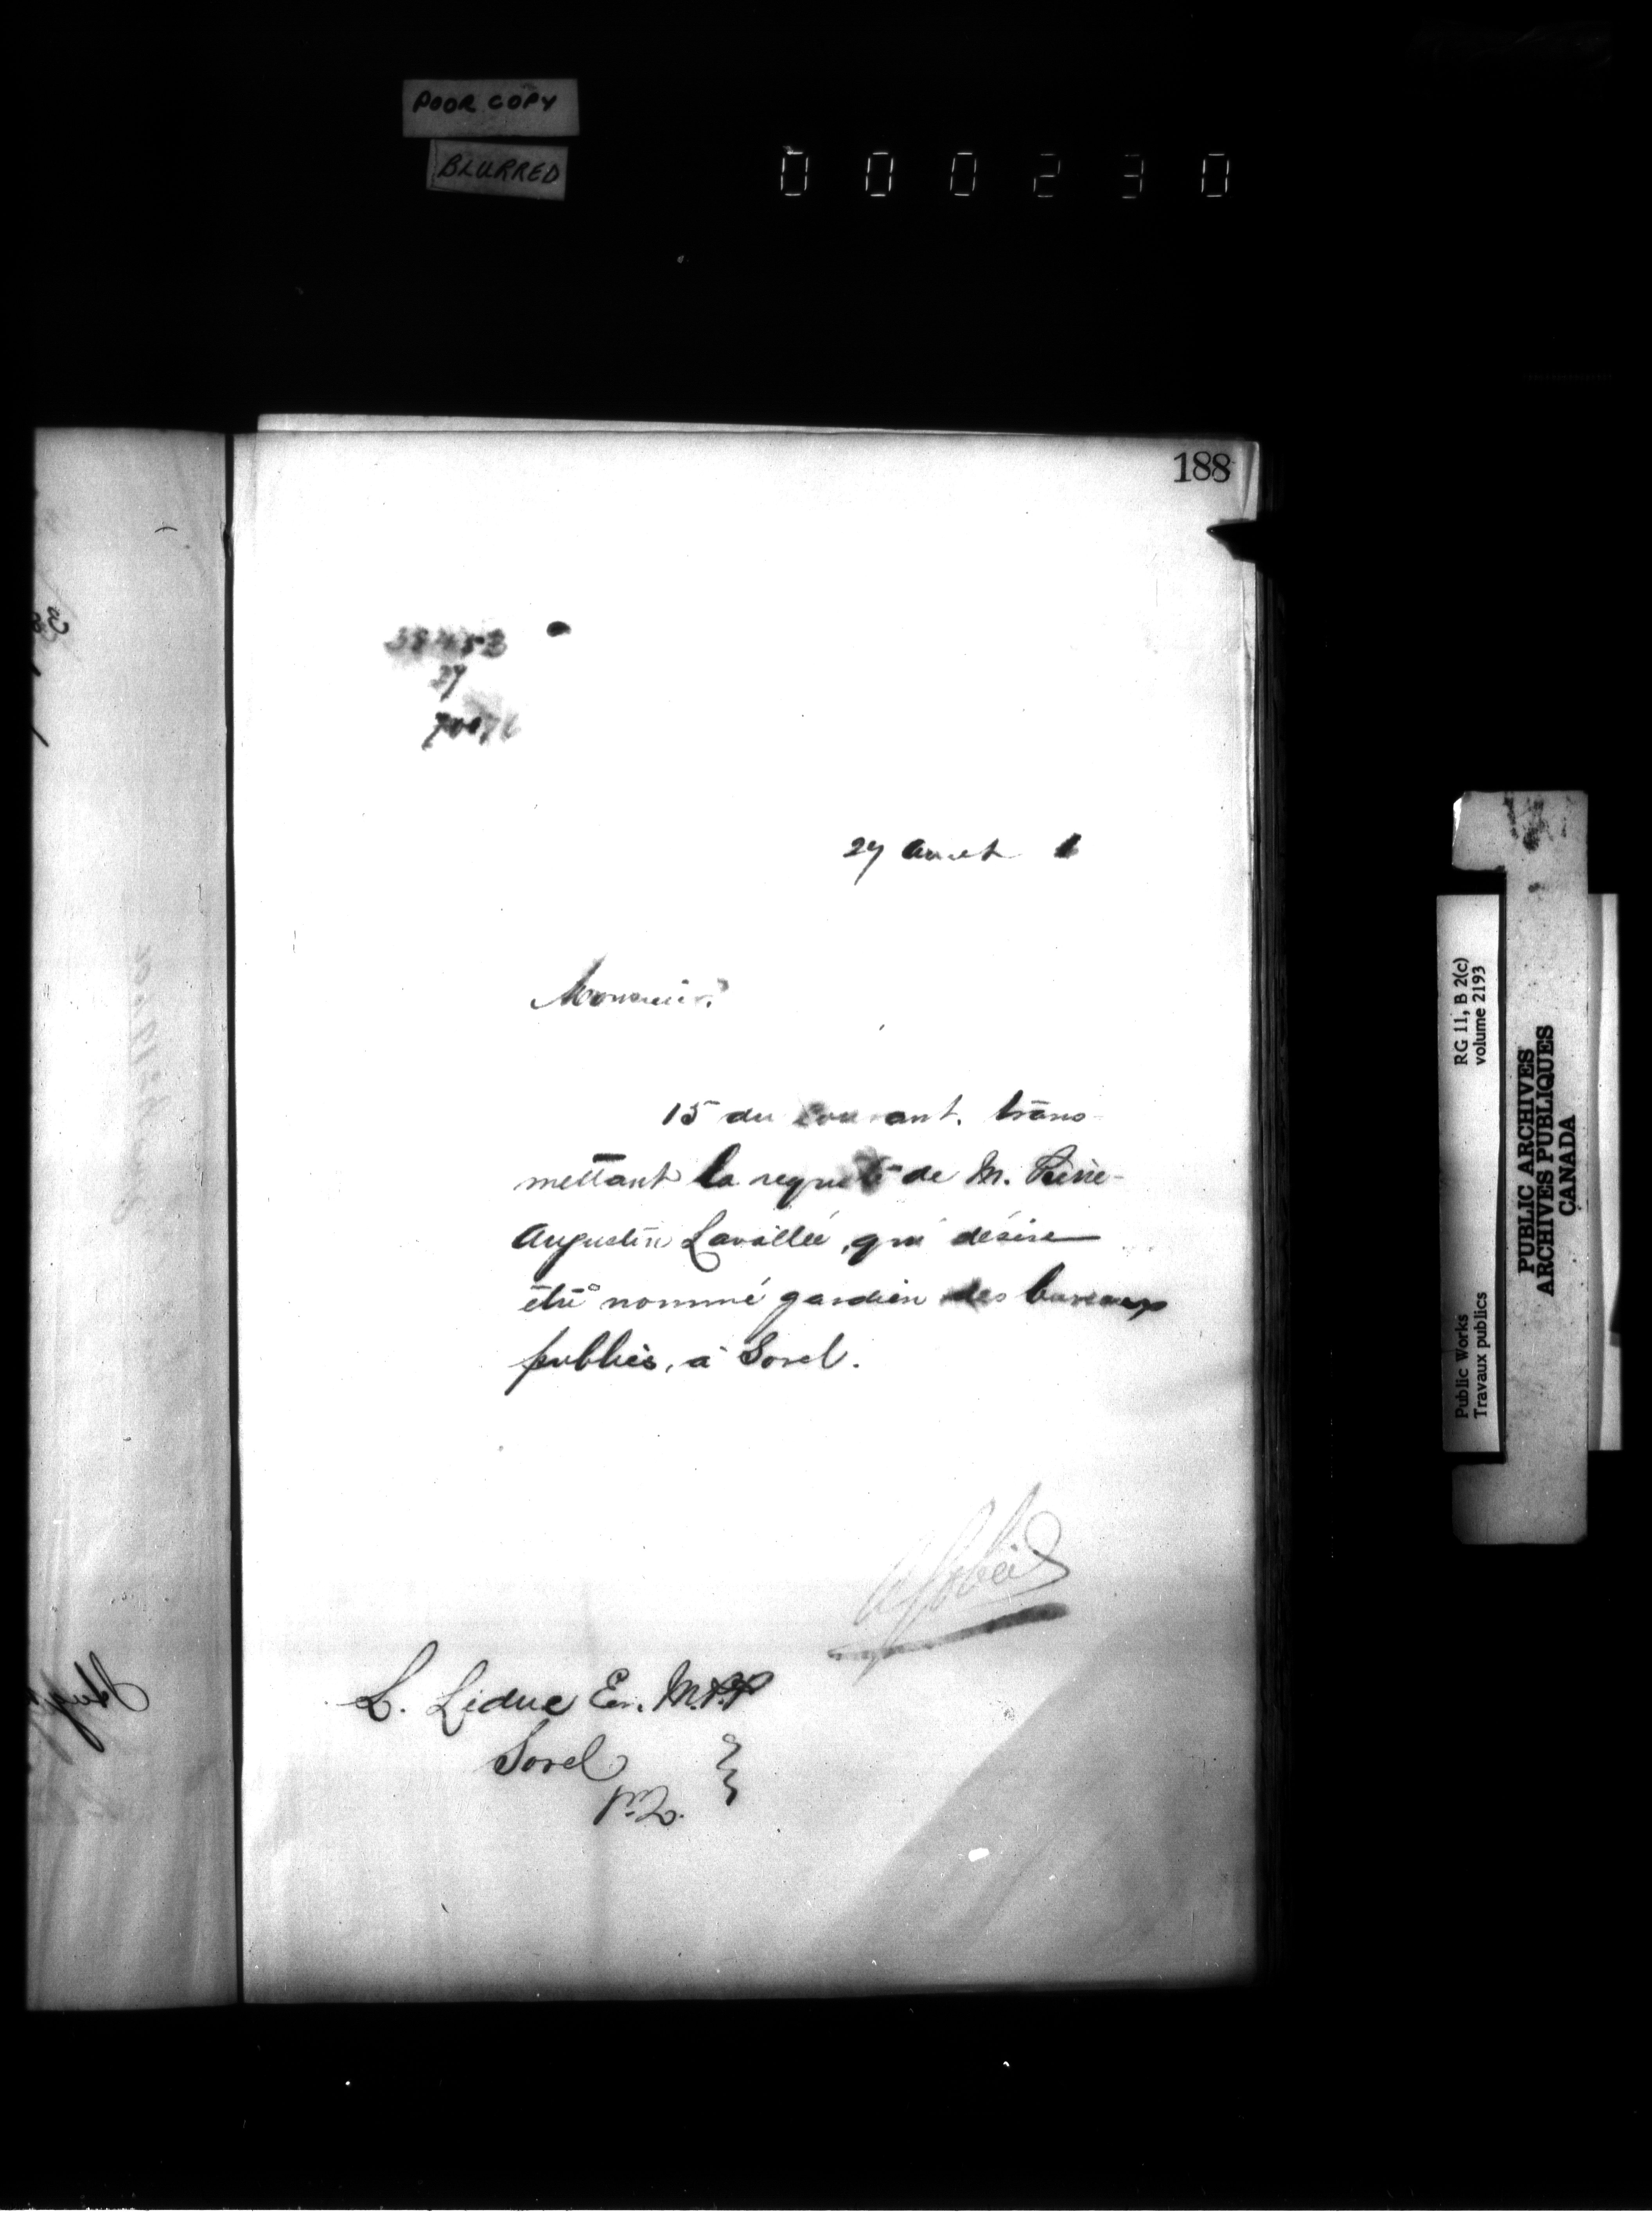 POOR COPY
BLURRED
000230
188
27
27 Août 1
Monsieur,
15 du courant, trans-
mettant la requête de M. Pierre-
Augustin Lavallée, qui désire
être nommé gardien des bureaux
publics, à Sorel.
L. Leduc Er. M.P.P
Sorel
P.Q.
RG 11, B 2(c)
volume 2193
Public Works
Travaux publics
PUBLIC ARCHIVES
ARCHIVES PUBLIQUES
CANADA